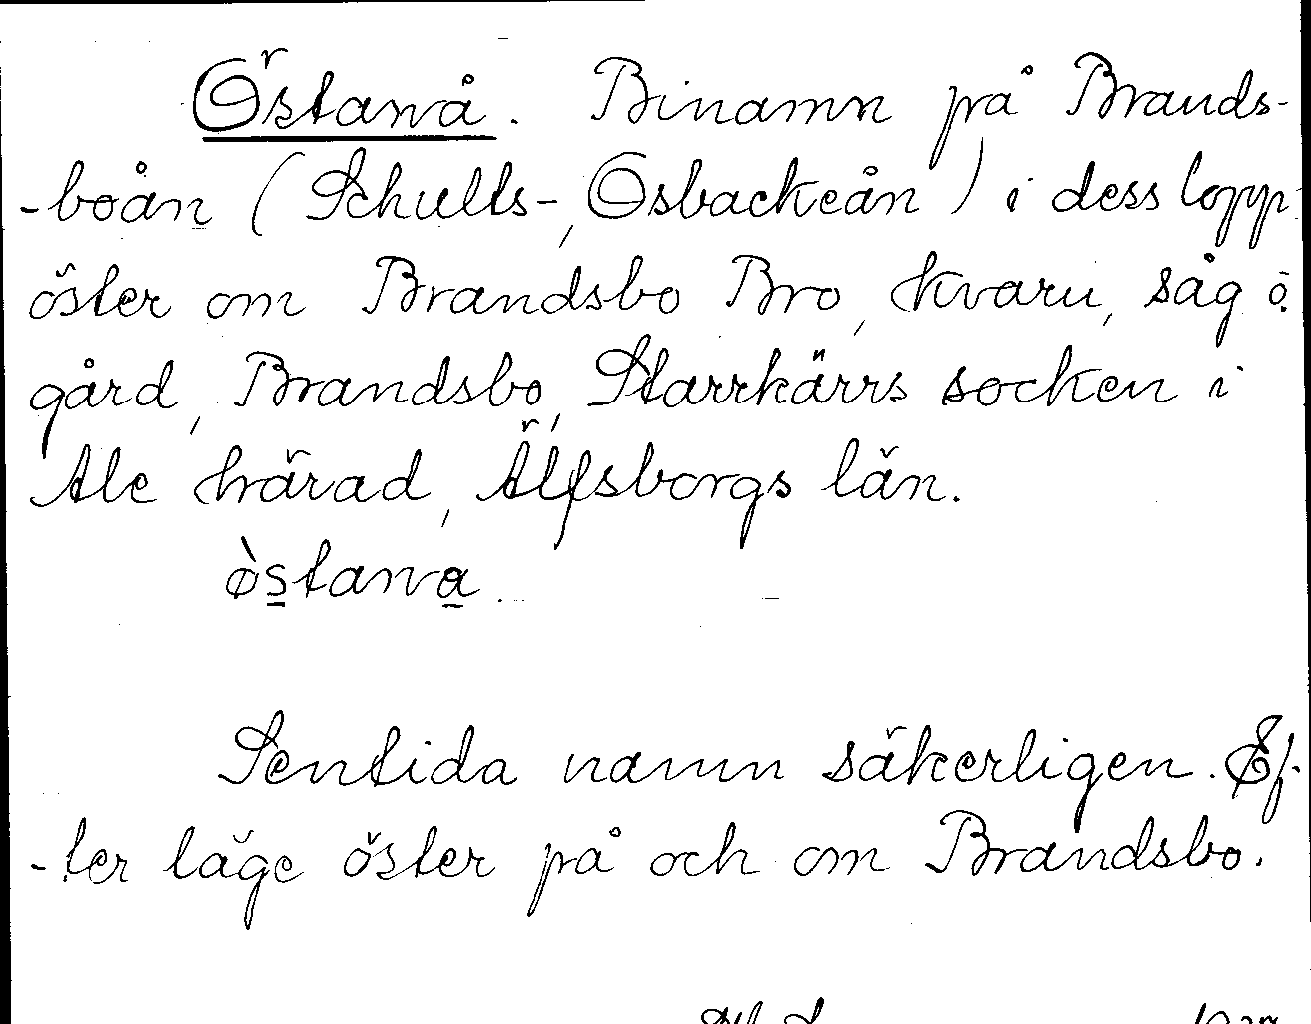 Östanå. Binamn på Brands-
-boån (Schults-, Osbackeån) i dess lopp
öster om Brandsbo Bro, kvarn, såg o.
gård, Brandsbo, Starrkärrs socken i
Ale härad, Älfsborgs län.
ø̀stana.
Sentida namn säkerligen. Ef-
-ter läge öster på och om Brandsbo.